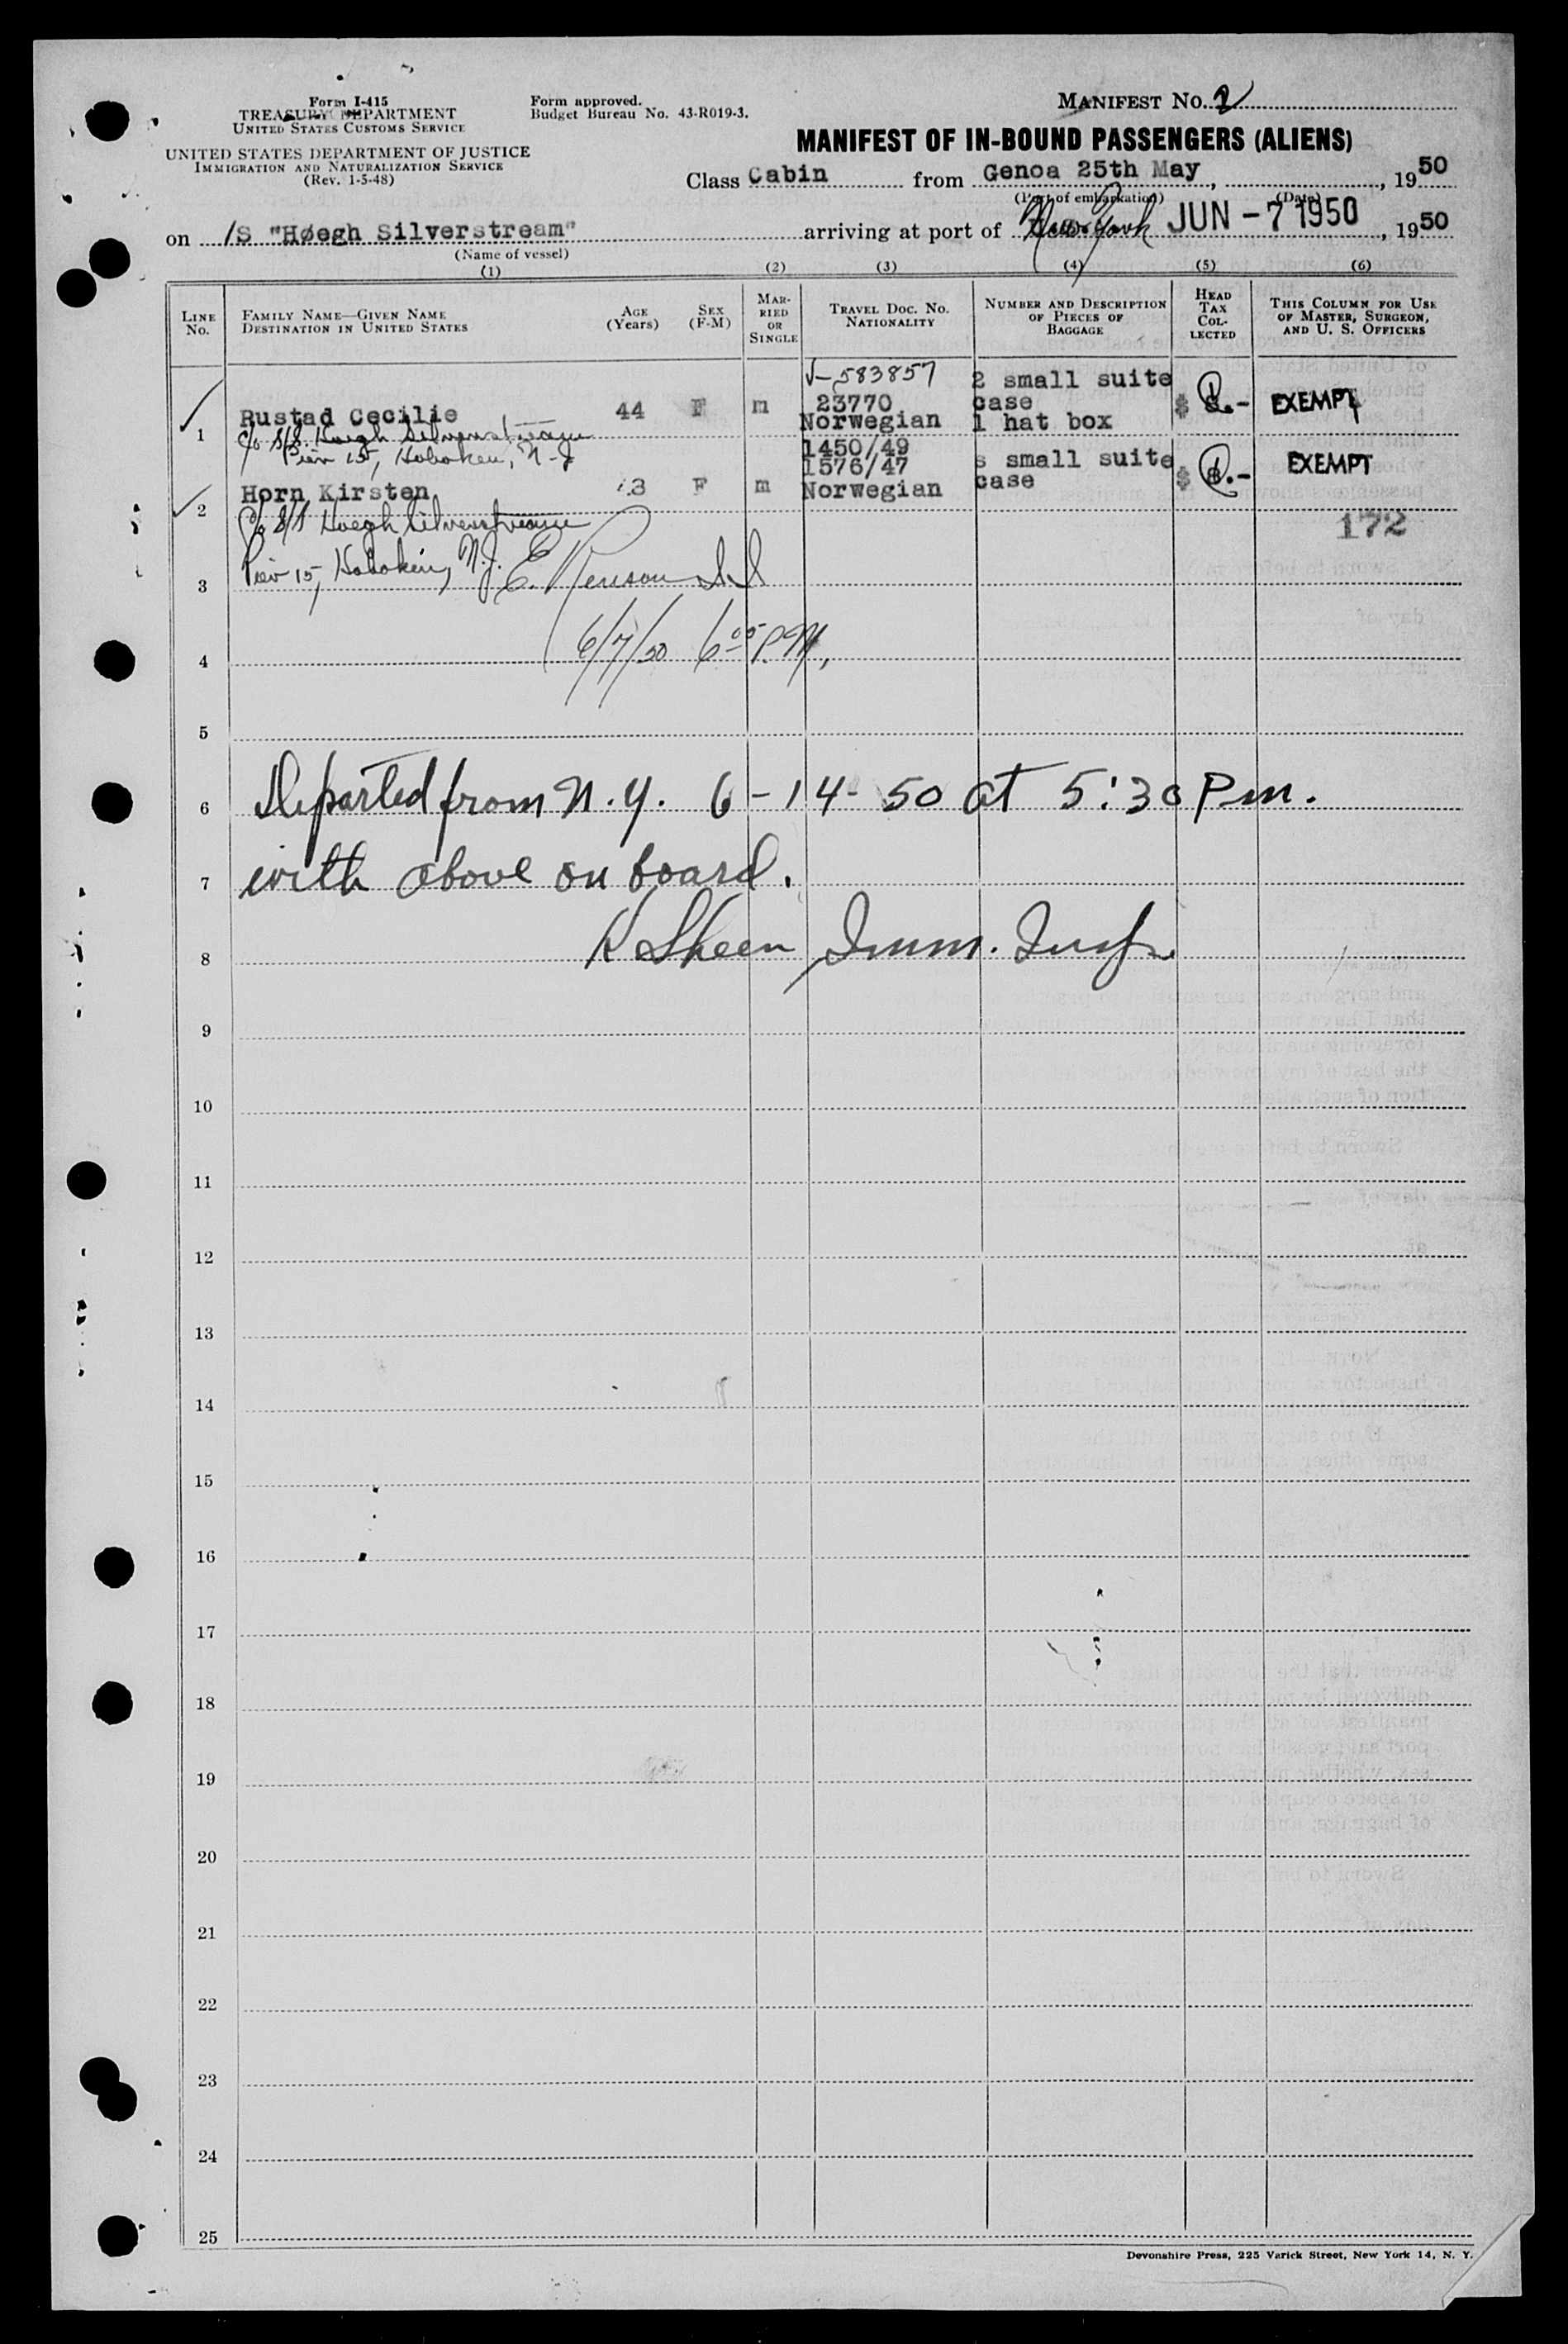 Form I-415
TREASURY DEPARTMENT
UNITED STATES CUSTOMS SERVICE
UNITED STATES DEPARTMENT OF JUSTICE
IMMIGRATION AND NATURALIZATION SERVICE
(Rev. 1-5-48)
Form approved.
Budget Bureau No. 43-R019-3.
MANIFEST No. 2
MANIFEST OF IN-BOUND PASSENGERS (ALIENS)
Class Cabin from Genoa 25th May, , 1950
(Port of embarkation) (Date)
on /S "Høegh Silverstream" arriving at port of New York JUN -7 1950, 1950
(Name of vessel)
(1) (2) (3) (4) (5) (6)
LINE No. FAMILY NAME—GIVEN NAME DESTINATION IN UNITED STATES AGE (Years) SEX (F-M) MAR-RIED OR SINGLE TRAVEL DOC. NO. NATIONALITY NUMBER AND DESCRIPTION OF PIECES OF BAGGAGE HEAD TAX COL-LECTED THIS COLUMN FOR USE OF MASTER, SURGEON, AND U. S. OFFICERS
V-583857 2 small suite
Rustad Cecilie 44 F m 23770 case $ 8.- EXEMPT
1 c/o S/S. Hoegh Silverstream Norwegian 1 hat box
Pier 15, Hoboken, N-J 1450/49
1576/47 s small suite EXEMPT
Horn Kirsten 3 F m Norwegian case $ 8.-
2 c/o S/S Hoegh Silverstream 172
3 Pier 15, Hoboken, N.J. E.
4 6/7/50 6 05 P.M.
5
6 Departed from N.Y. 6-14-50 at 5:30 Pm.
7 with above on board.
8 K Skeen, Imm. Insp.
9
10
11
12
13
14
15
16
17
18
19
20
21
22
23
24
25
Devonshire Press, 225 Varick Street, New York 14, N. Y.